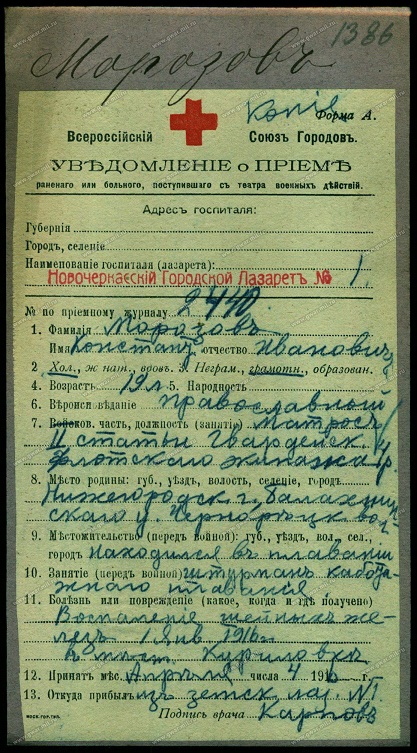 1386
Морозовъ
Копія
Форма А.
Всероссійскій Союзъ Городовъ.
УВѢДОМЛЕНІЕ о ПРІЕМѢ
раненаго или больного, поступившаго съ театра военныхъ дѣйствій.
Адресъ госпиталя:
Губернія
Городъ, селеніе
Наименованіе госпиталя (лазарета):
Новочеркасскій Городской Лазаретъ № 1.
№ по пріемному журналу 2440.
1. Фамилія Морозовъ
Имя Констант. отчество Ивановичъ
2. Хол., ж нат., вдов. 3. Неграм., грамотн., образован.
4. Возрастъ 19 л 5. Народность
6. Вѣроисповѣданіе Православный
7. Войсков. часть, должность (занятіе) Матросъ
II статьи Гвардейск.
Флотскаго экипажа
8. Мѣсто родины: губ., уѣздъ, волость, селеніе, городъ
Нижегородск. г., Балахнин
скаго у. Чернорѣцк вол
9. Мѣстожительство (передъ войной): губ., уѣздъ, вол., сел.,
городъ находился въ плаваніи
10. Занятіе (передъ войной) штурманъ кабота
жнаго плаванія
11. Болѣзнь или поврежденіе (какое, когда и гдѣ получено)
Воспаленіе шейныхъ же
лезъ 1 Янв 1916 г.
въ мѣст. Куриловкѣ
12. Принятъ мѣс. Апрѣля числа 4 191
13. Откуда прибылъ изъ земск лаз. №1.
Подпись врача Карповъ
МОСК. ГОР. ТИП.